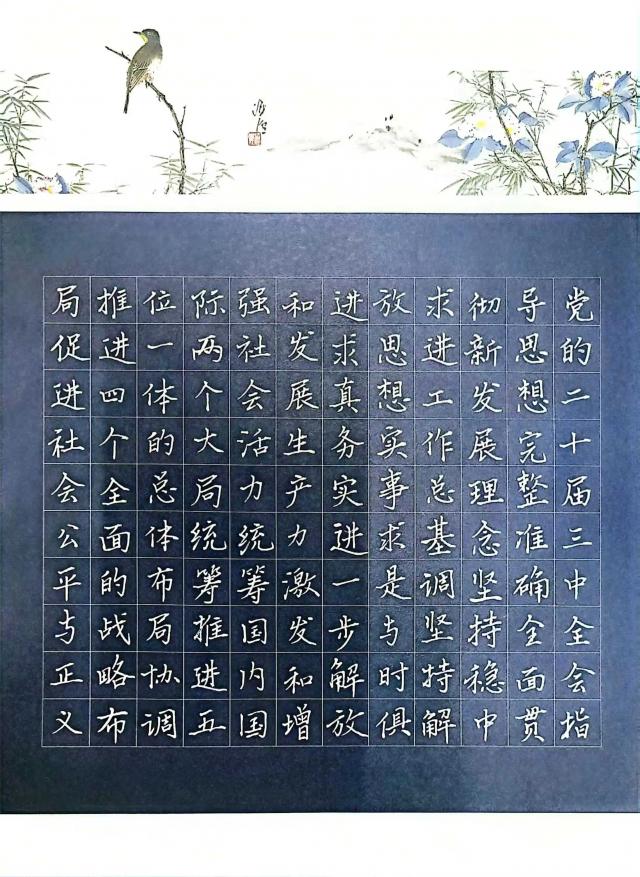 党的二十届三中全会指
导思想完整准确全面贯
彻新发展理念坚持稳中
求进工作总基调坚持解
放思想实事求是与时俱
进求真务实进一步解放
和发展生产力激发和增
强社会活力统筹国内国
际两个大局统筹推进五
位一体的总体布局协调
推进四个全面的战略布
局促进社会公平与正义